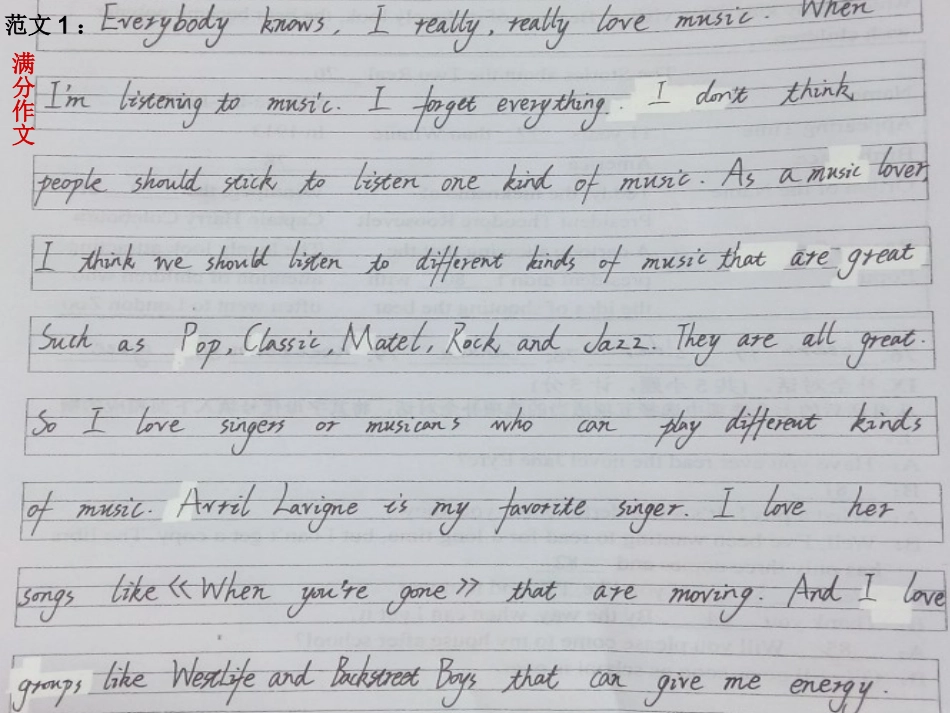 范文1：
满分作文
Everybody knows, I really, really love music. When
I'm listening to music. I forget everything. I don't think
people should stick to listen one kind of music. As a music lover,
I think we should listen to different kinds of music that are great
Such as Pop, Classic, Matel, Rock and Jazz. They are all great.
So I love singers or musicans who can play different kinds
of music. Avril Lavigne is my favorite singer. I love her
songs like 《When you're gone》 that are moving. And I love
groups like Westlife and Backstreet Boys that can give me energy.